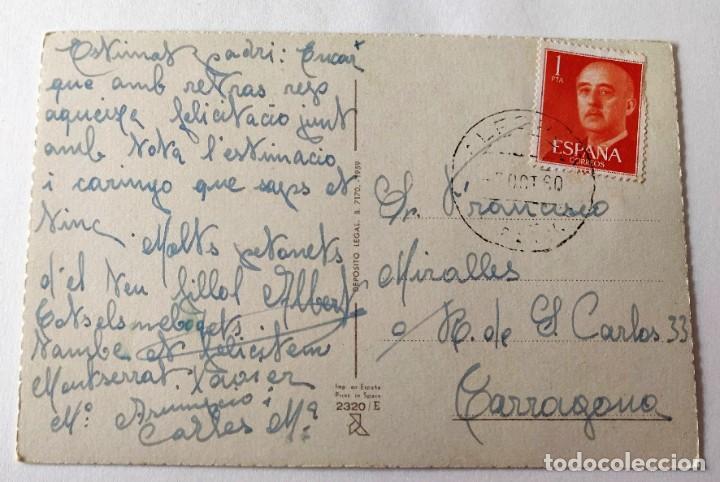 Estimat padri: Encar
que amb retras rep
aqueixa felicitacio junt
amb tota l'estimacio
i carinyo que saps et
tinc. Molts petonets
d'el teu fillol Albert
Tots els nebodets
tambe et feliciten
Montserrat. Xavier
Mª Assumpcio i
Carles Mª
DEPOSITO LEGAL. B. 7170. 1959
Imp. en España
Printed in Spain
2320/E
1
PTA
ESPAÑA
CORREOS
OCT 60
Sr. Francisco
Miralles
c/ R. de S. Carlos 33
Tarragona
todocoleccion.net